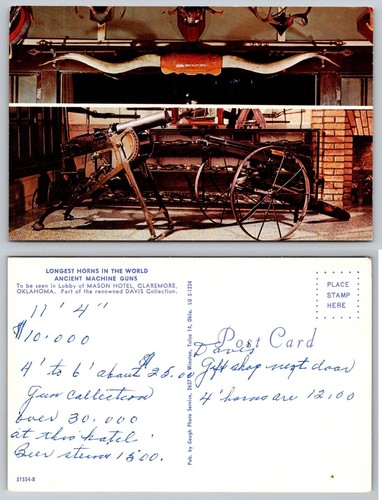 LONGEST HORNS IN THE WORLD
ANCIENT MACHINE GUNS
To be seen in Lobby of MASON HOTEL, CLAREMORE,
OKLAHOMA. Part of the renowned DAVIS Collection.
11' 4"
$10.000
4' to 6' about $25.00
Gun Callection
over 30.000
at this hotel
Beer steins 15.00.
31554-B
Pub. by Gough Photo Service, Winston, Tulsa 14, Okla. LU 5-1234
PLACE
STAMP
HERE
Post Card
Davis
Gift shop next door
4' horns are 12.00